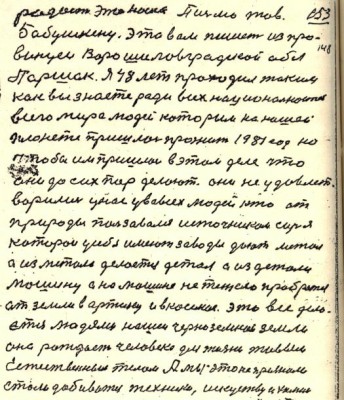 радост. Это наса Письмо тов. 053
Бабушкину. Это вам пишет из про- 148
винции Ворошиловградской обл
Паршак. Я 48 лет проходил таким
как вы знаете ради всех национальностей
всего мира людей которым на нашей
планете пришлось прожить 1981 год но
чтобы им пришлось в этом деле что
они до сих пор делают. они не удовлет
ворили у нас у всех людей кто от
природы пользовался источником сырья
которой у себя имеют заводы дают метал
а из метала делается детал а из детали
машину а на машине не тяжело пробратся
от земли в артику и в космос. Это все дела
ется людям нашей черноземной земли
она рождает человека для жизни живым
естественным телом А мы это не признали
стали добывать технику, искуству и химию